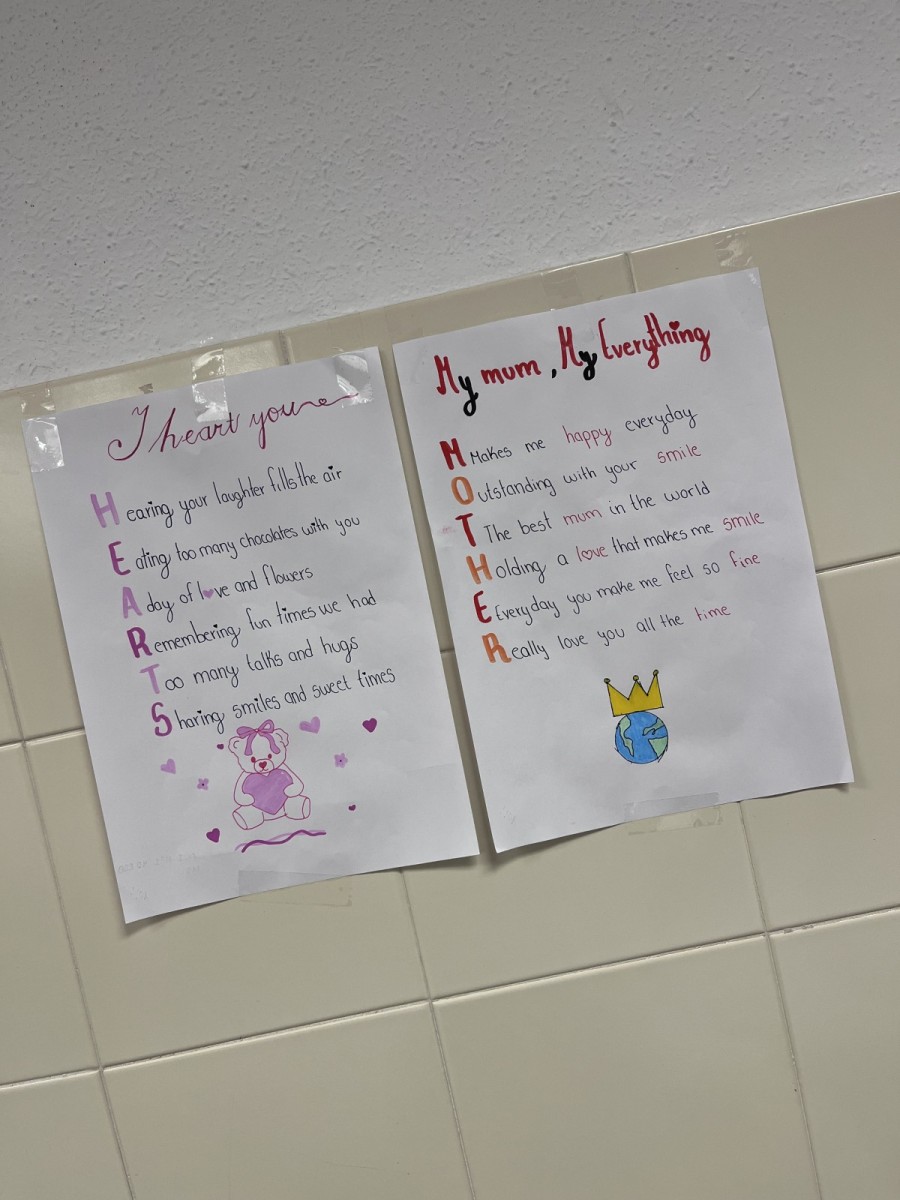 I heart you
Hearing your laughter fills the air
Eating too many chocolates with you
A day of love and flowers
Remembering fun times we had
Too many talks and hugs
Sharing smiles and sweet times
My mum, My Everything
M Makes me happy everyday
Outstanding with your smile
T The best mum in the world
Holding a love that makes me smile
E Everyday you make me feel so fine
Really love you all the time